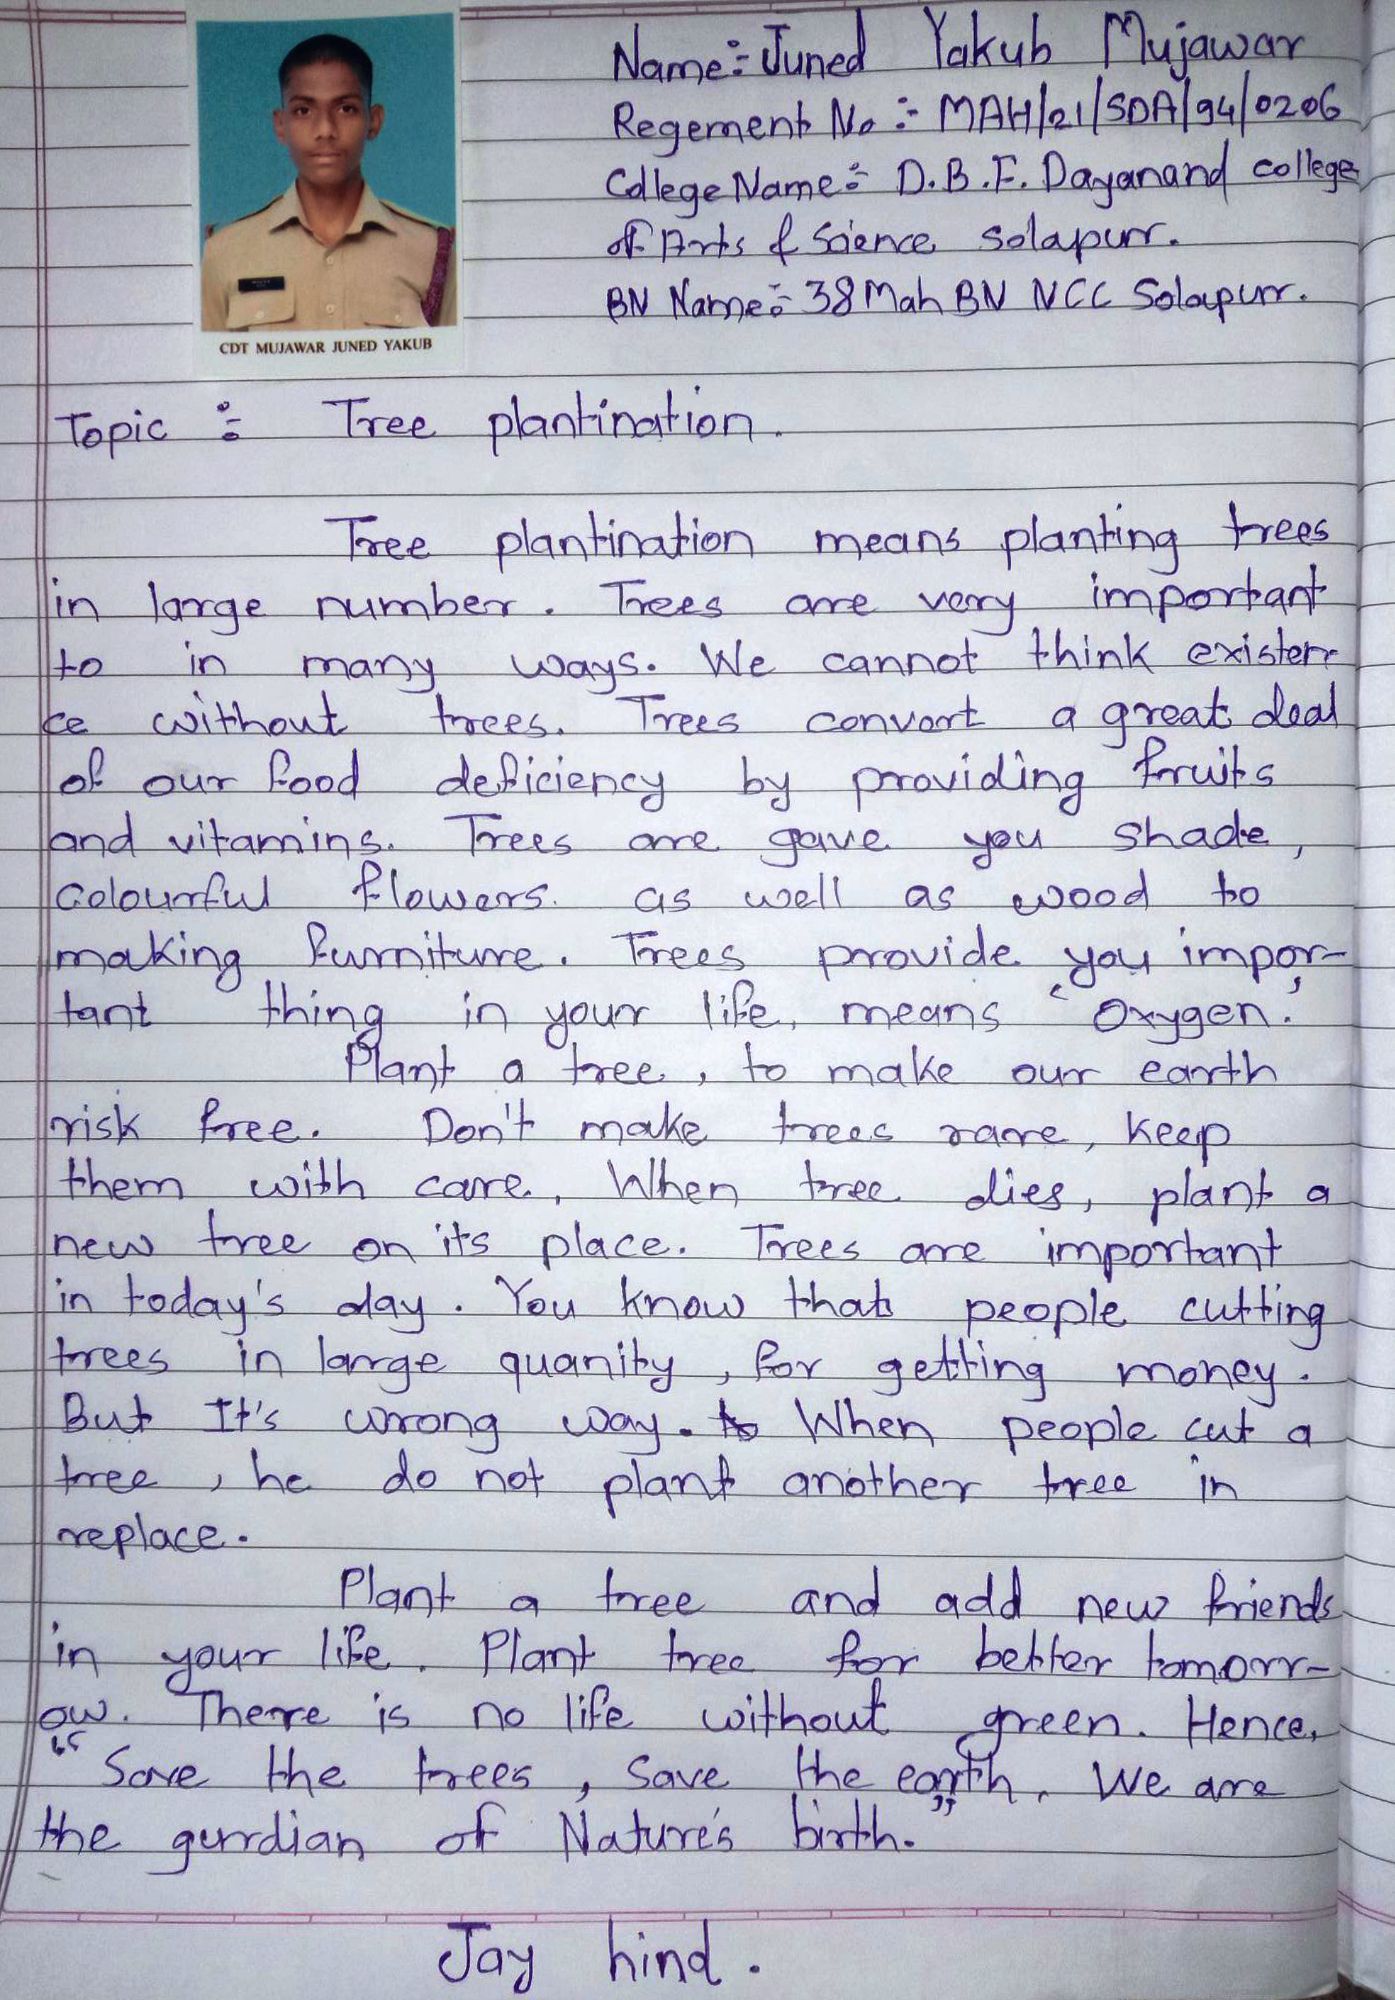 Name:- Juned Yakub Mujawar
Regement No :- MAH/21/SDA/94/0206
College Name:- D.B.F. Dayanand college
of Arts & Science Solapur.
BN Name:- 38 Mah BN NCC Solapur.
CDT MUJAWAR JUNED YAKUB
Topic :- Tree plantination.
Tree plantination means planting trees
in large number. Trees are very important
to in many ways. We cannot think existen-
ce without trees. Trees convert a great deal
of our food deficiency by providing fruits
and vitamins. Trees are gave you shade,
colourful flowers. as well as wood to
making furniture. Trees provide you impor-
tant thing in your life, means 'Oxygen.'
Plant a tree, to make our earth
risk free. Don't make trees rare, keep
them with care, When tree dies, plant a
new tree on its place. Trees are important
in today's day. You know that people cutting
trees in large quanity, for getting money.
But It's wrong way. When people cut a
tree, he do not plant another tree in
replace.
Plant a tree and add new friends
in your life. Plant tree for better tomorr-
ow. There is no life without green. Hence,
"Save the trees, Save the earth. We are
the gurdian of Nature's birth."
Jay hind.